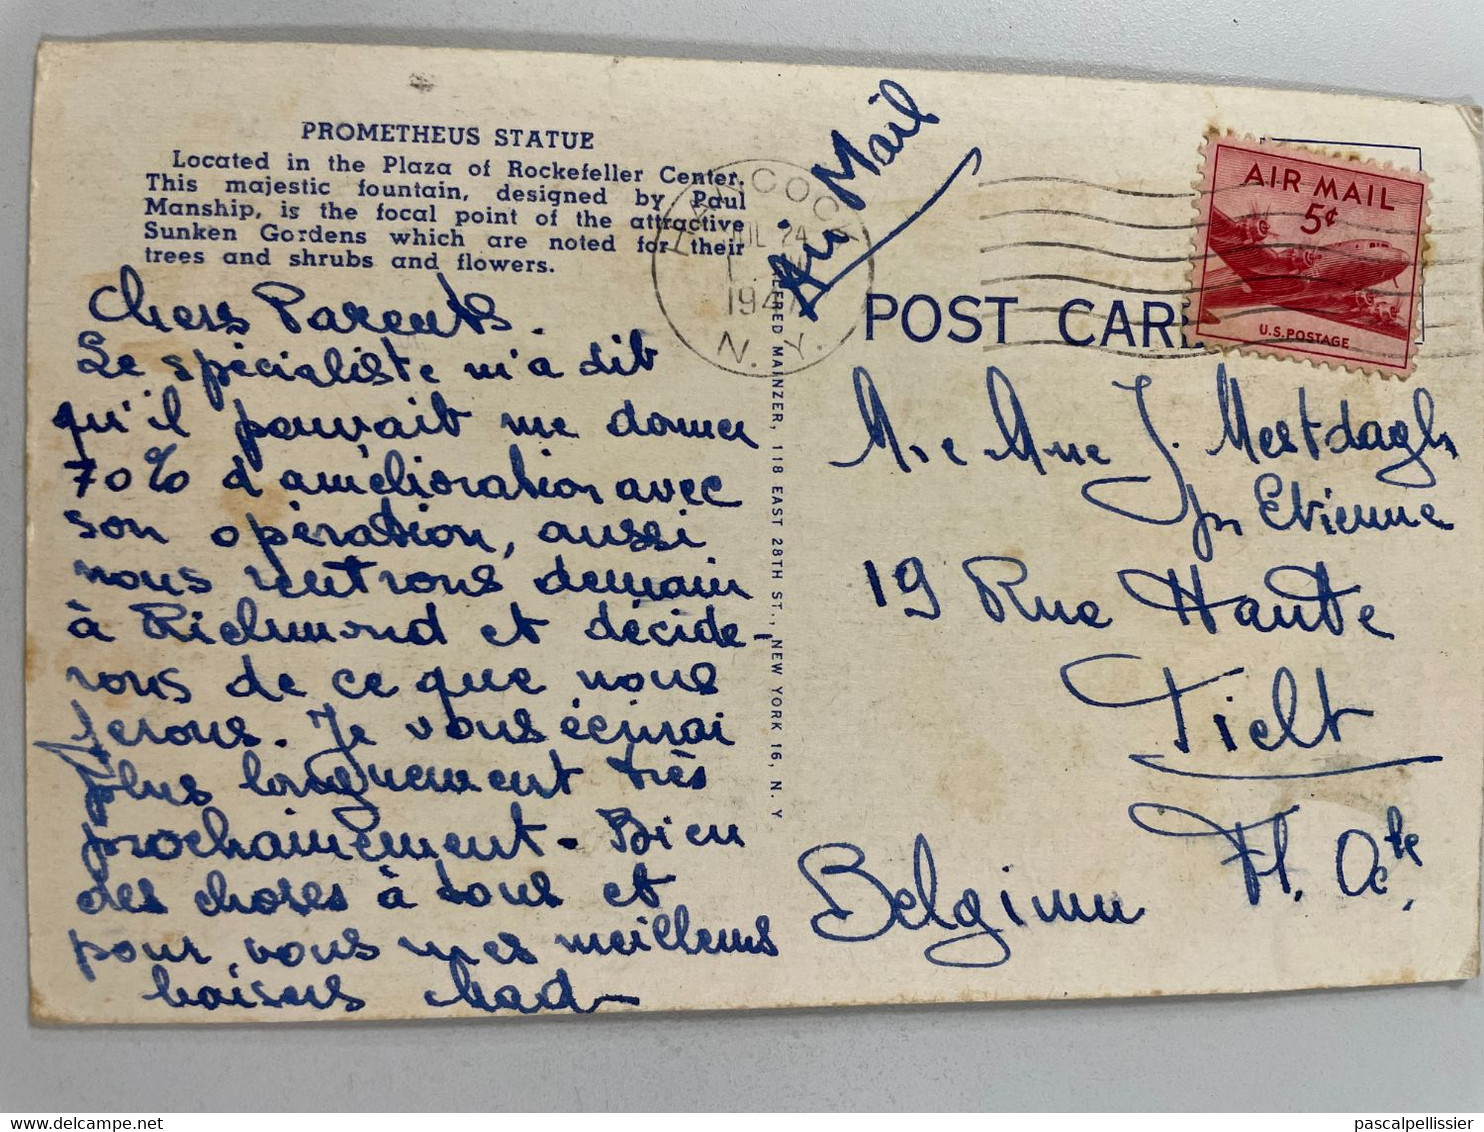 PROMETHEUS STATUE
Located in the Plaza of Rockefeller Center.
This majestic fountain, designed by Paul
Manship, is the focal point of the attractive
Sunken Gordens which are noted for their
trees and shrubs and flowers.
Chers Parents.
Le spécialiste m'a dit
qu'il pouvait me donner
70% d'amélioration avec
son opération, aussi
nous rentrons demain
à Richmond et décide-
rons de ce que nous
ferons. Je vous écrirai
plus longuement très
prochainement - Bien
des choses à tous et
pour vous mes meilleurs
baisers
ALFRED MAINZER, 118 EAST 28TH ST., NEW YORK 16, N. Y.
HANCOCK
JUL 24
1947
N. Y.
Air Mail
POST CARD
AIR MAIL
5¢
U.S. POSTAGE
Mr e Mme J. Mestdagh
Etienne
19 Rue Haute
Tielt
Fl. Octe.
Belgium
pascalpellissier